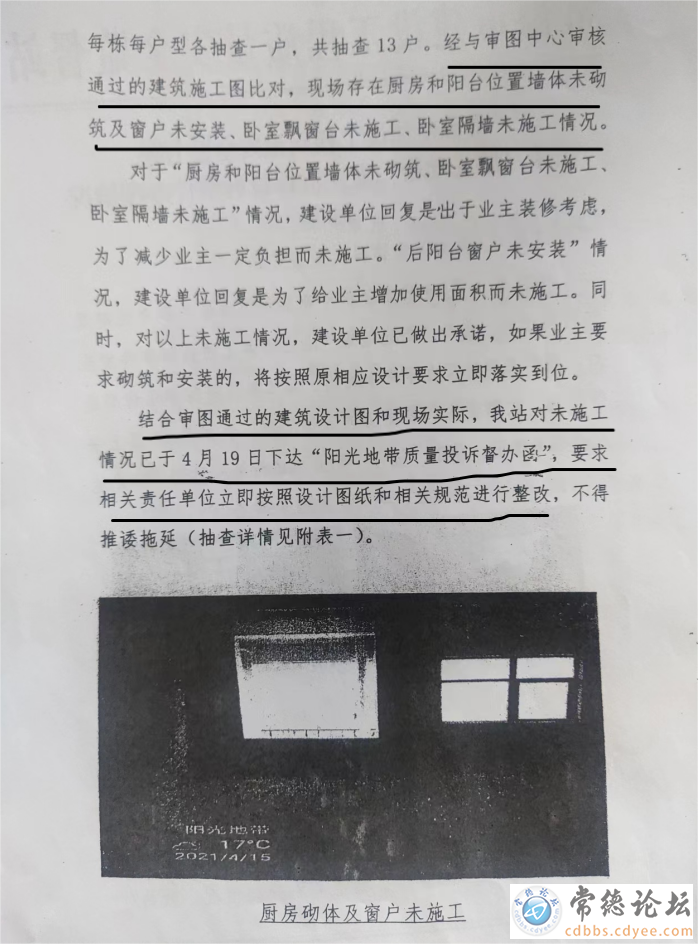 每栋每户型各抽查一户，共抽查13户。经与审图中心审核
通过的建筑施工图比对，现场存在厨房和阳台位置墙体未砌
筑及窗户未安装、卧室飘窗台未施工、卧室隔墙未施工情况。
对于“厨房和阳台位置墙体未砌筑、卧室飘窗台未施工、
卧室隔墙未施工”情况，建设单位回复是出于业主装修考虑，
为了减少业主一定负担而未施工。“后阳台窗户未安装”情
况，建设单位回复是为了给业主增加使用面积而未施工。同
时，对以上未施工情况，建设单位已做出承诺，如果业主要
求砌筑和安装的，将按照原相应设计要求立即落实到位。
结合审图通过的建筑设计图和现场实际，我站对未施工
情况已于4月19日下达“阳光地带质量投诉督办函”，要求
相关责任单位立即按照设计图纸和相关规范进行整改，不得
推诿拖延（抽查详情见附表一）。
阳光地带
17°C
2021/4/15
厨房砌体及窗户未施工
常德论坛
cdbbs.cdyee.com